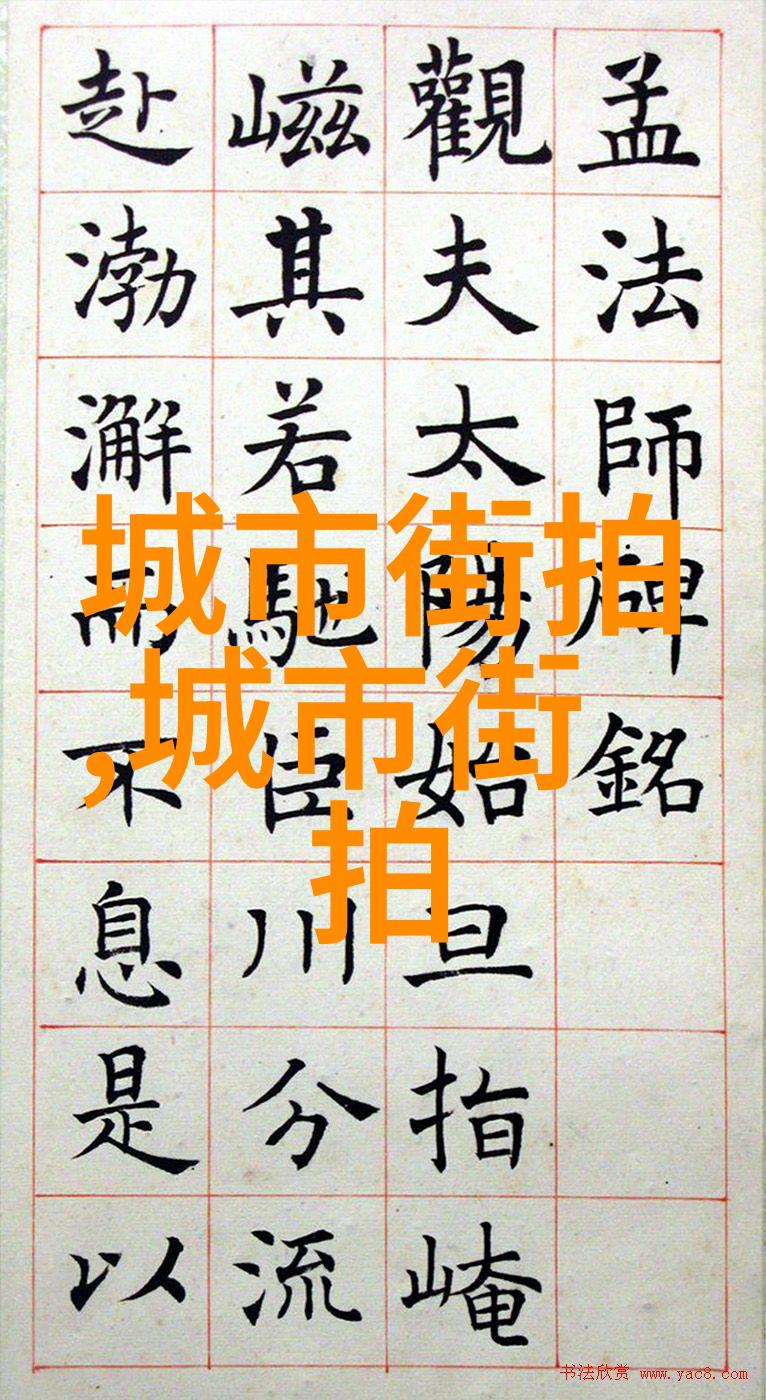 孟法師碑銘
觀夫太陽始旦指崦
嵫其若馳臣川分流
赴渤澥而不息是以
城市街拍
,城市街
拍
书法欣赏 www.yac8.com